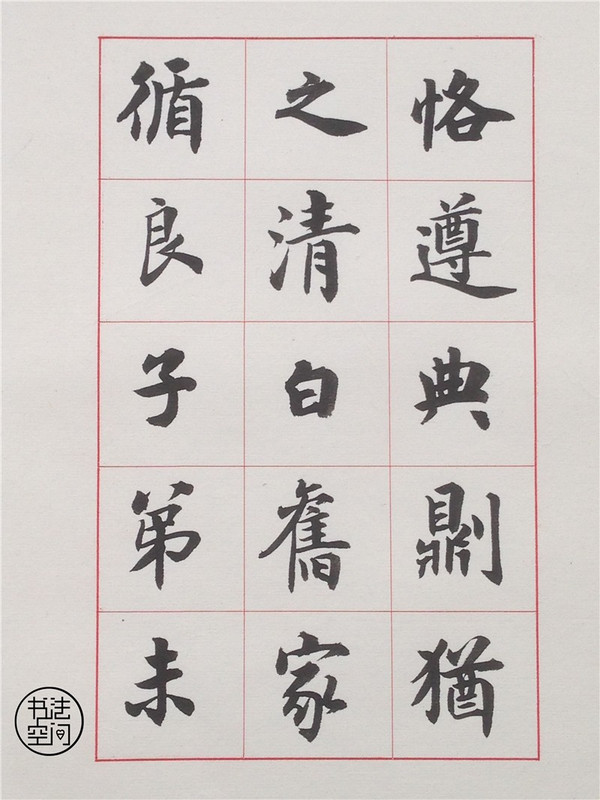 恪遵典𠟭猶
之清白舊家
循良子第未
书法
空间